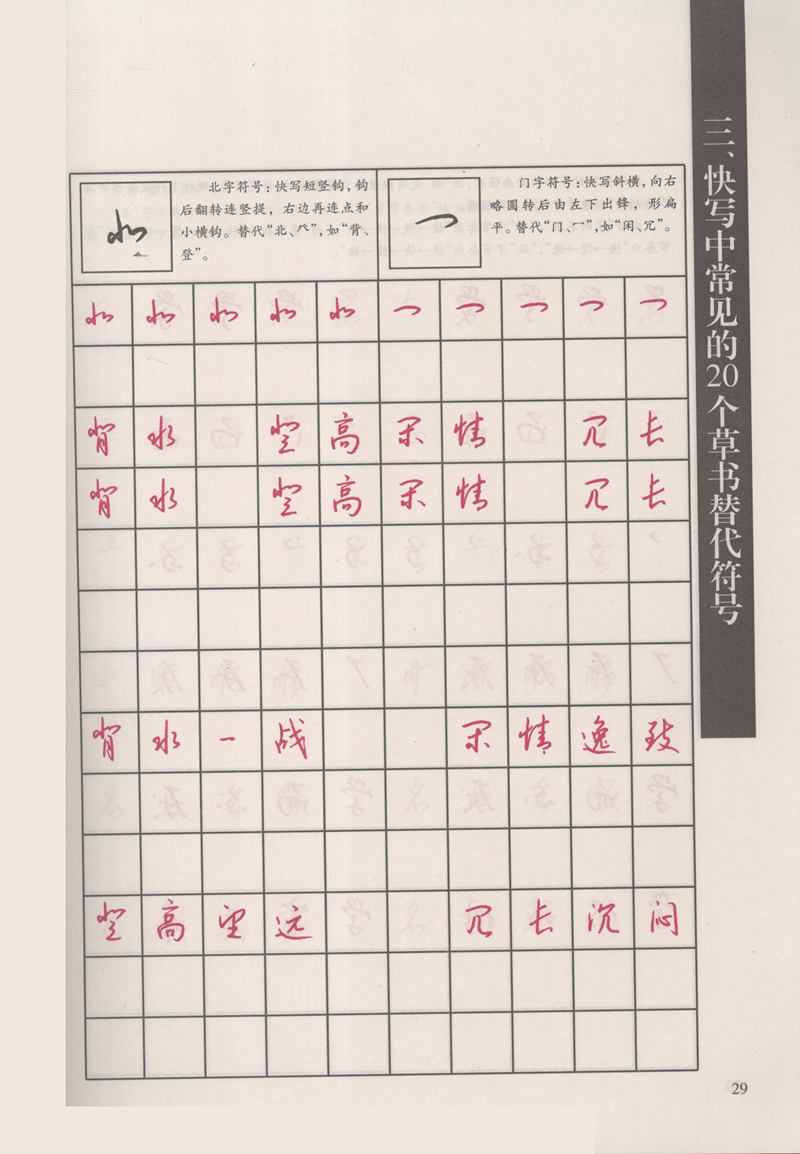 三、快写中常见的20个草书替代符号
北字符号：快写短竖钩，钩
后翻转连竖提，右边再连点和
小横钩。替代“北、癶”，如“背、
登”。
门字符号：快写斜横，向右
略圆转后由左下出锋，形扁
平。替代“门、冖”，如“闲、冗”。
背水 登高 闲情 冗长
背水 登高 闲情 冗长
背水一战 闲情逸致
登高望远 冗长沉闷
29